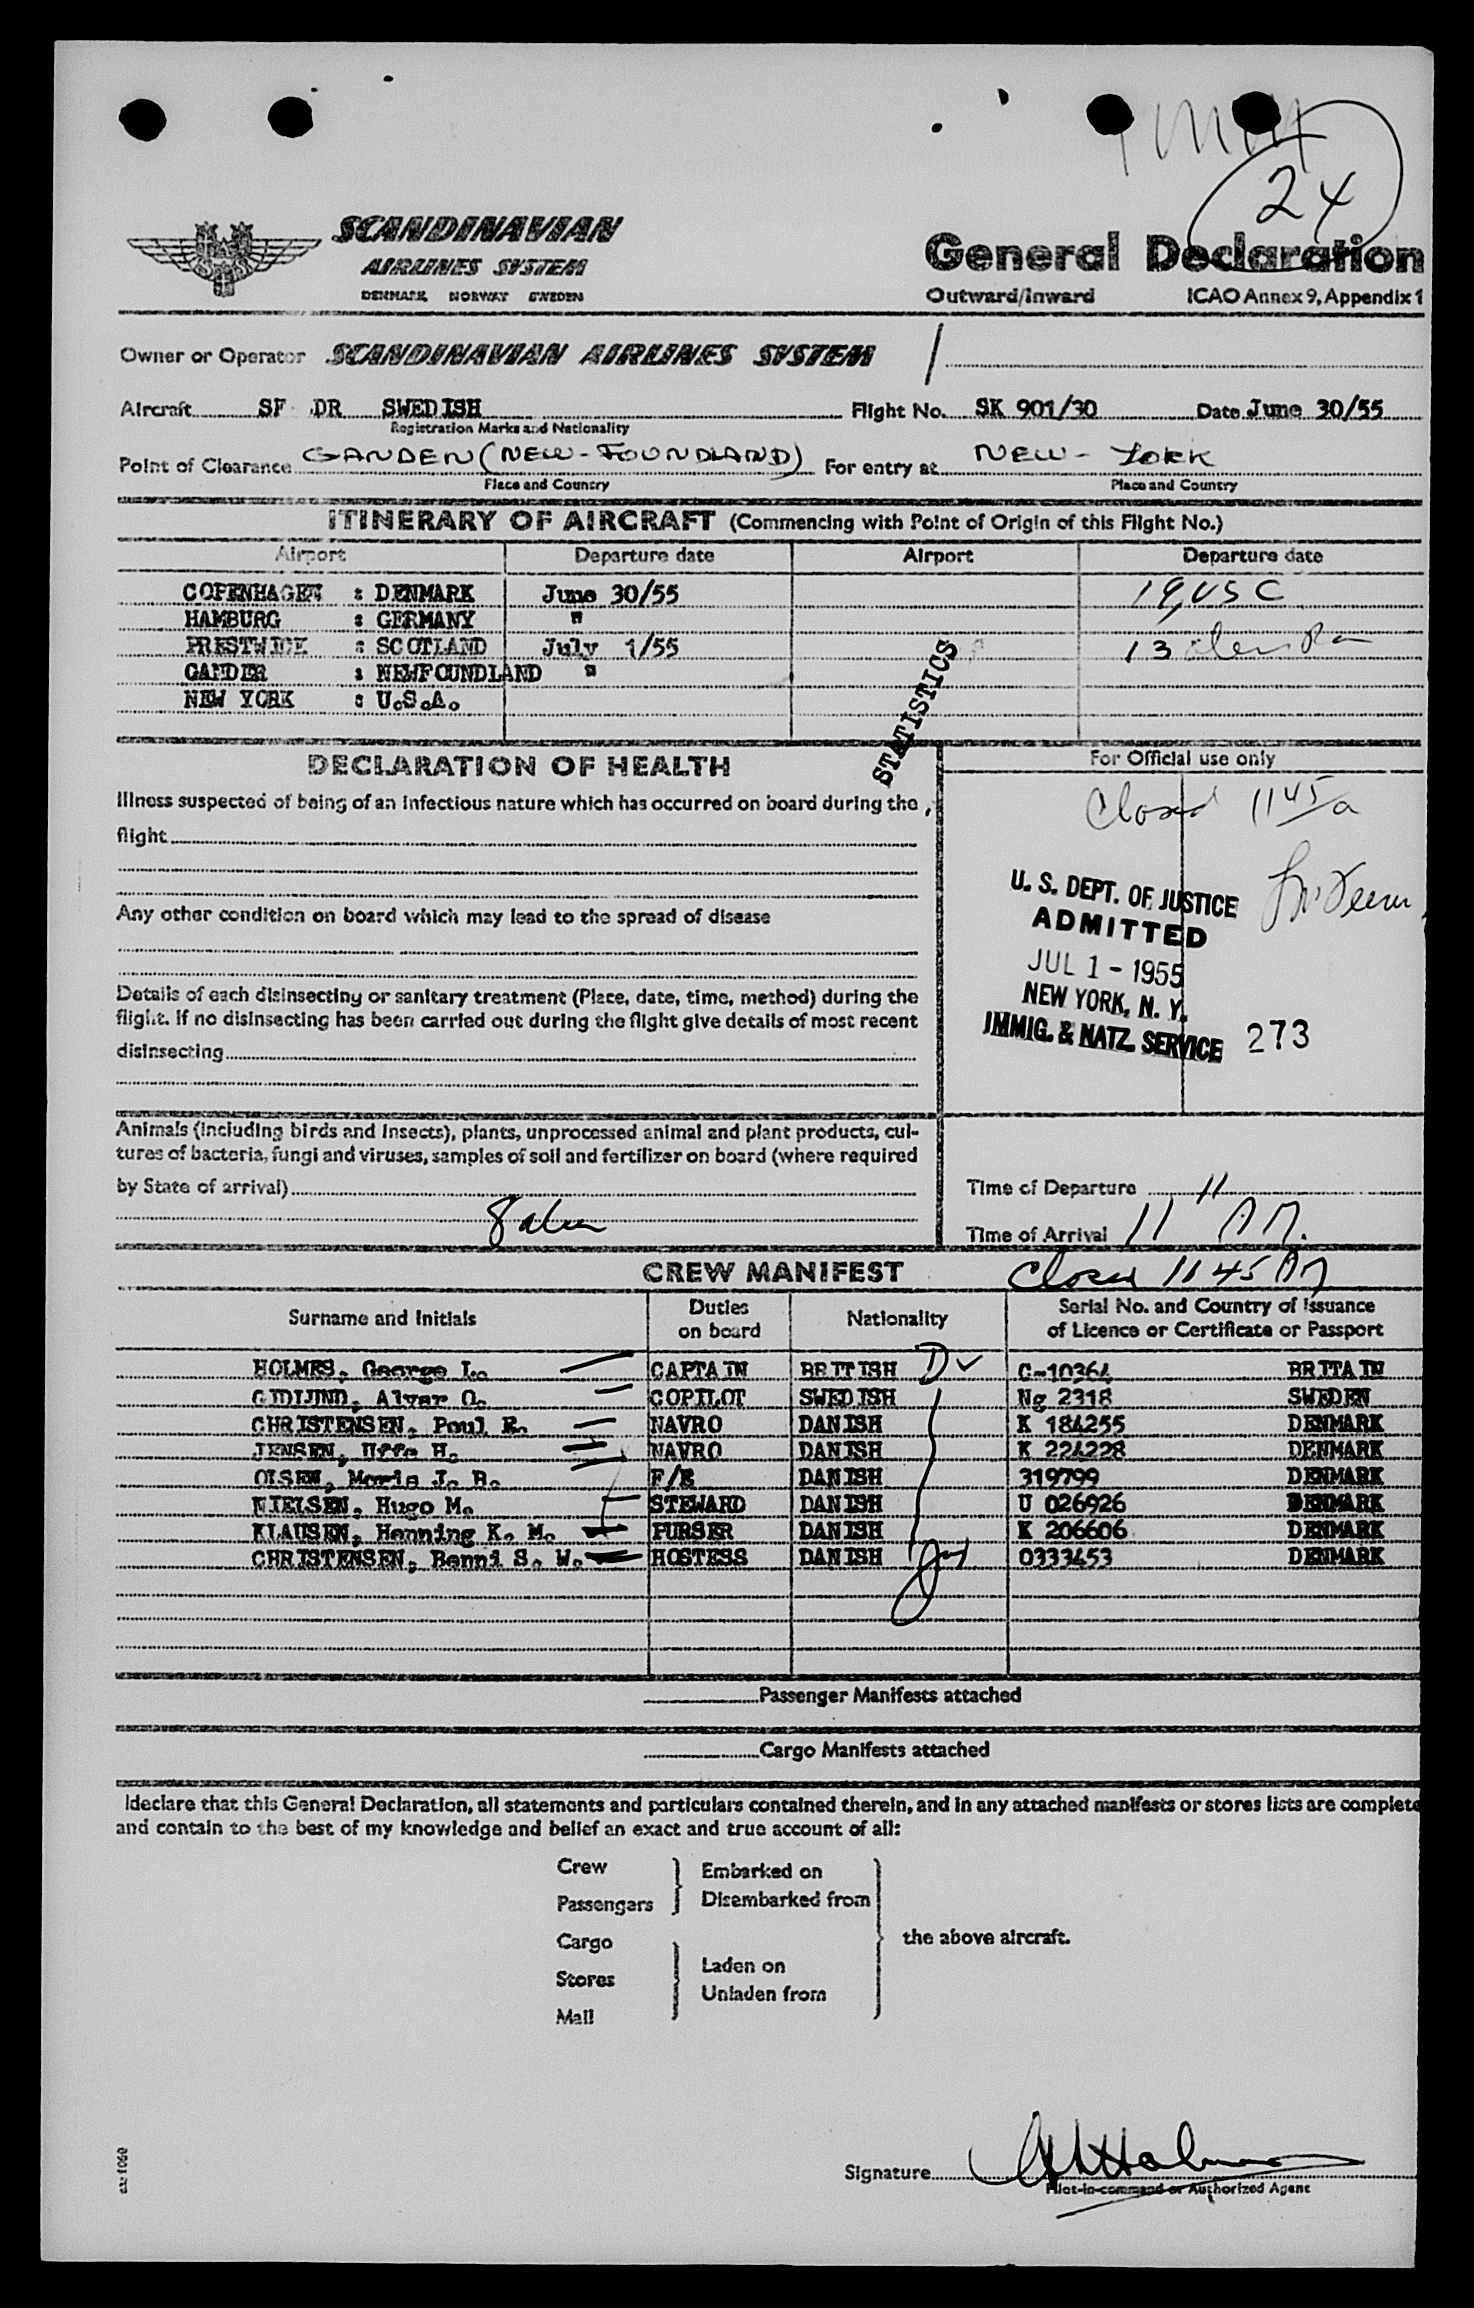 24
SCANDINAVIAN
AIRLINES SYSTEM
DENMARK NORWAY SWEDEN
General Declaration
Outward/Inward ICAO Annex 9, Appendix 1
Owner or Operator SCANDINAVIAN AIRLINES SYSTEM
Aircraft SF DR SWEDISH Flight No. SK 901/30 Date June 30/55
Registration Marks and Nationality
Point of Clearance GANDEN (NEW-FOUNDLAND) For entry at NEW-YORK
Place and Country Place and Country
ITINERARY OF AIRCRAFT (Commencing with Point of Origin of this Flight No.)
Airport Departure date Airport Departure date
COPENHAGEN : DENMARK June 30/55 19 USC
HAMBURG : GERMANY "
PRESTWICK : SCOTLAND July 1/55 13
GANDER : NEWFOUNDLAND "
NEW YORK : U.S.A.
STATISTICS
DECLARATION OF HEALTH
For Official use only
Illness suspected of being of an infectious nature which has occurred on board during the
flight
Closed 1145/a
Any other condition on board which may lead to the spread of disease
U. S. DEPT. OF JUSTICE
ADMITTED
JUL 1 - 1955
NEW YORK, N. Y.
IMMIG. & NATZ. SERVICE 273
Details of each disinsecting or sanitary treatment (Place, date, time, method) during the
flight. If no disinsecting has been carried out during the flight give details of most recent
disinsecting
Animals (including birds and insects), plants, unprocessed animal and plant products, cul-
tures of bacteria, fungi and viruses, samples of soil and fertilizer on board (where required
by State of arrival)
Time of Departure 11
Time of Arrival 11 AM.
CREW MANIFEST Closed 11 45 AM
Surname and Initials Duties on board Nationality Serial No. and Country of Issuance
of Licence or Certificate or Passport
HOLMES, George L. CAPTAIN BRITISH D C-10364 BRITAIN
GIDIJUND, Alvar O. COPILOT SWEDISH Ng 2318 SWEDEN
CHRISTENSEN, Poul E. NAVRO DANISH K 184255 DENMARK
JENSEN, Uffe H. NAVRO DANISH K 224228 DENMARK
OLSEN, Moris J. B. F/E DANISH 319799 DENMARK
NIELSEN, Hugo M. STEWARD DANISH U 026926 DENMARK
KLAUSEN, Henning K. M. PURSER DANISH K 206606 DENMARK
CHRISTENSEN, Benni S. W. HOSTESS DANISH 0333453 DENMARK
Passenger Manifests attached
Cargo Manifests attached
I declare that this General Declaration, all statements and particulars contained therein, and in any attached manifests or stores lists are complete
and contain to the best of my knowledge and belief an exact and true account of all:
Crew
Passengers
Embarked on
Disembarked from
Cargo
Stores
Mail
Laden on
Unladen from
the above aircraft.
Signature
Pilot-in-command or Authorized Agent